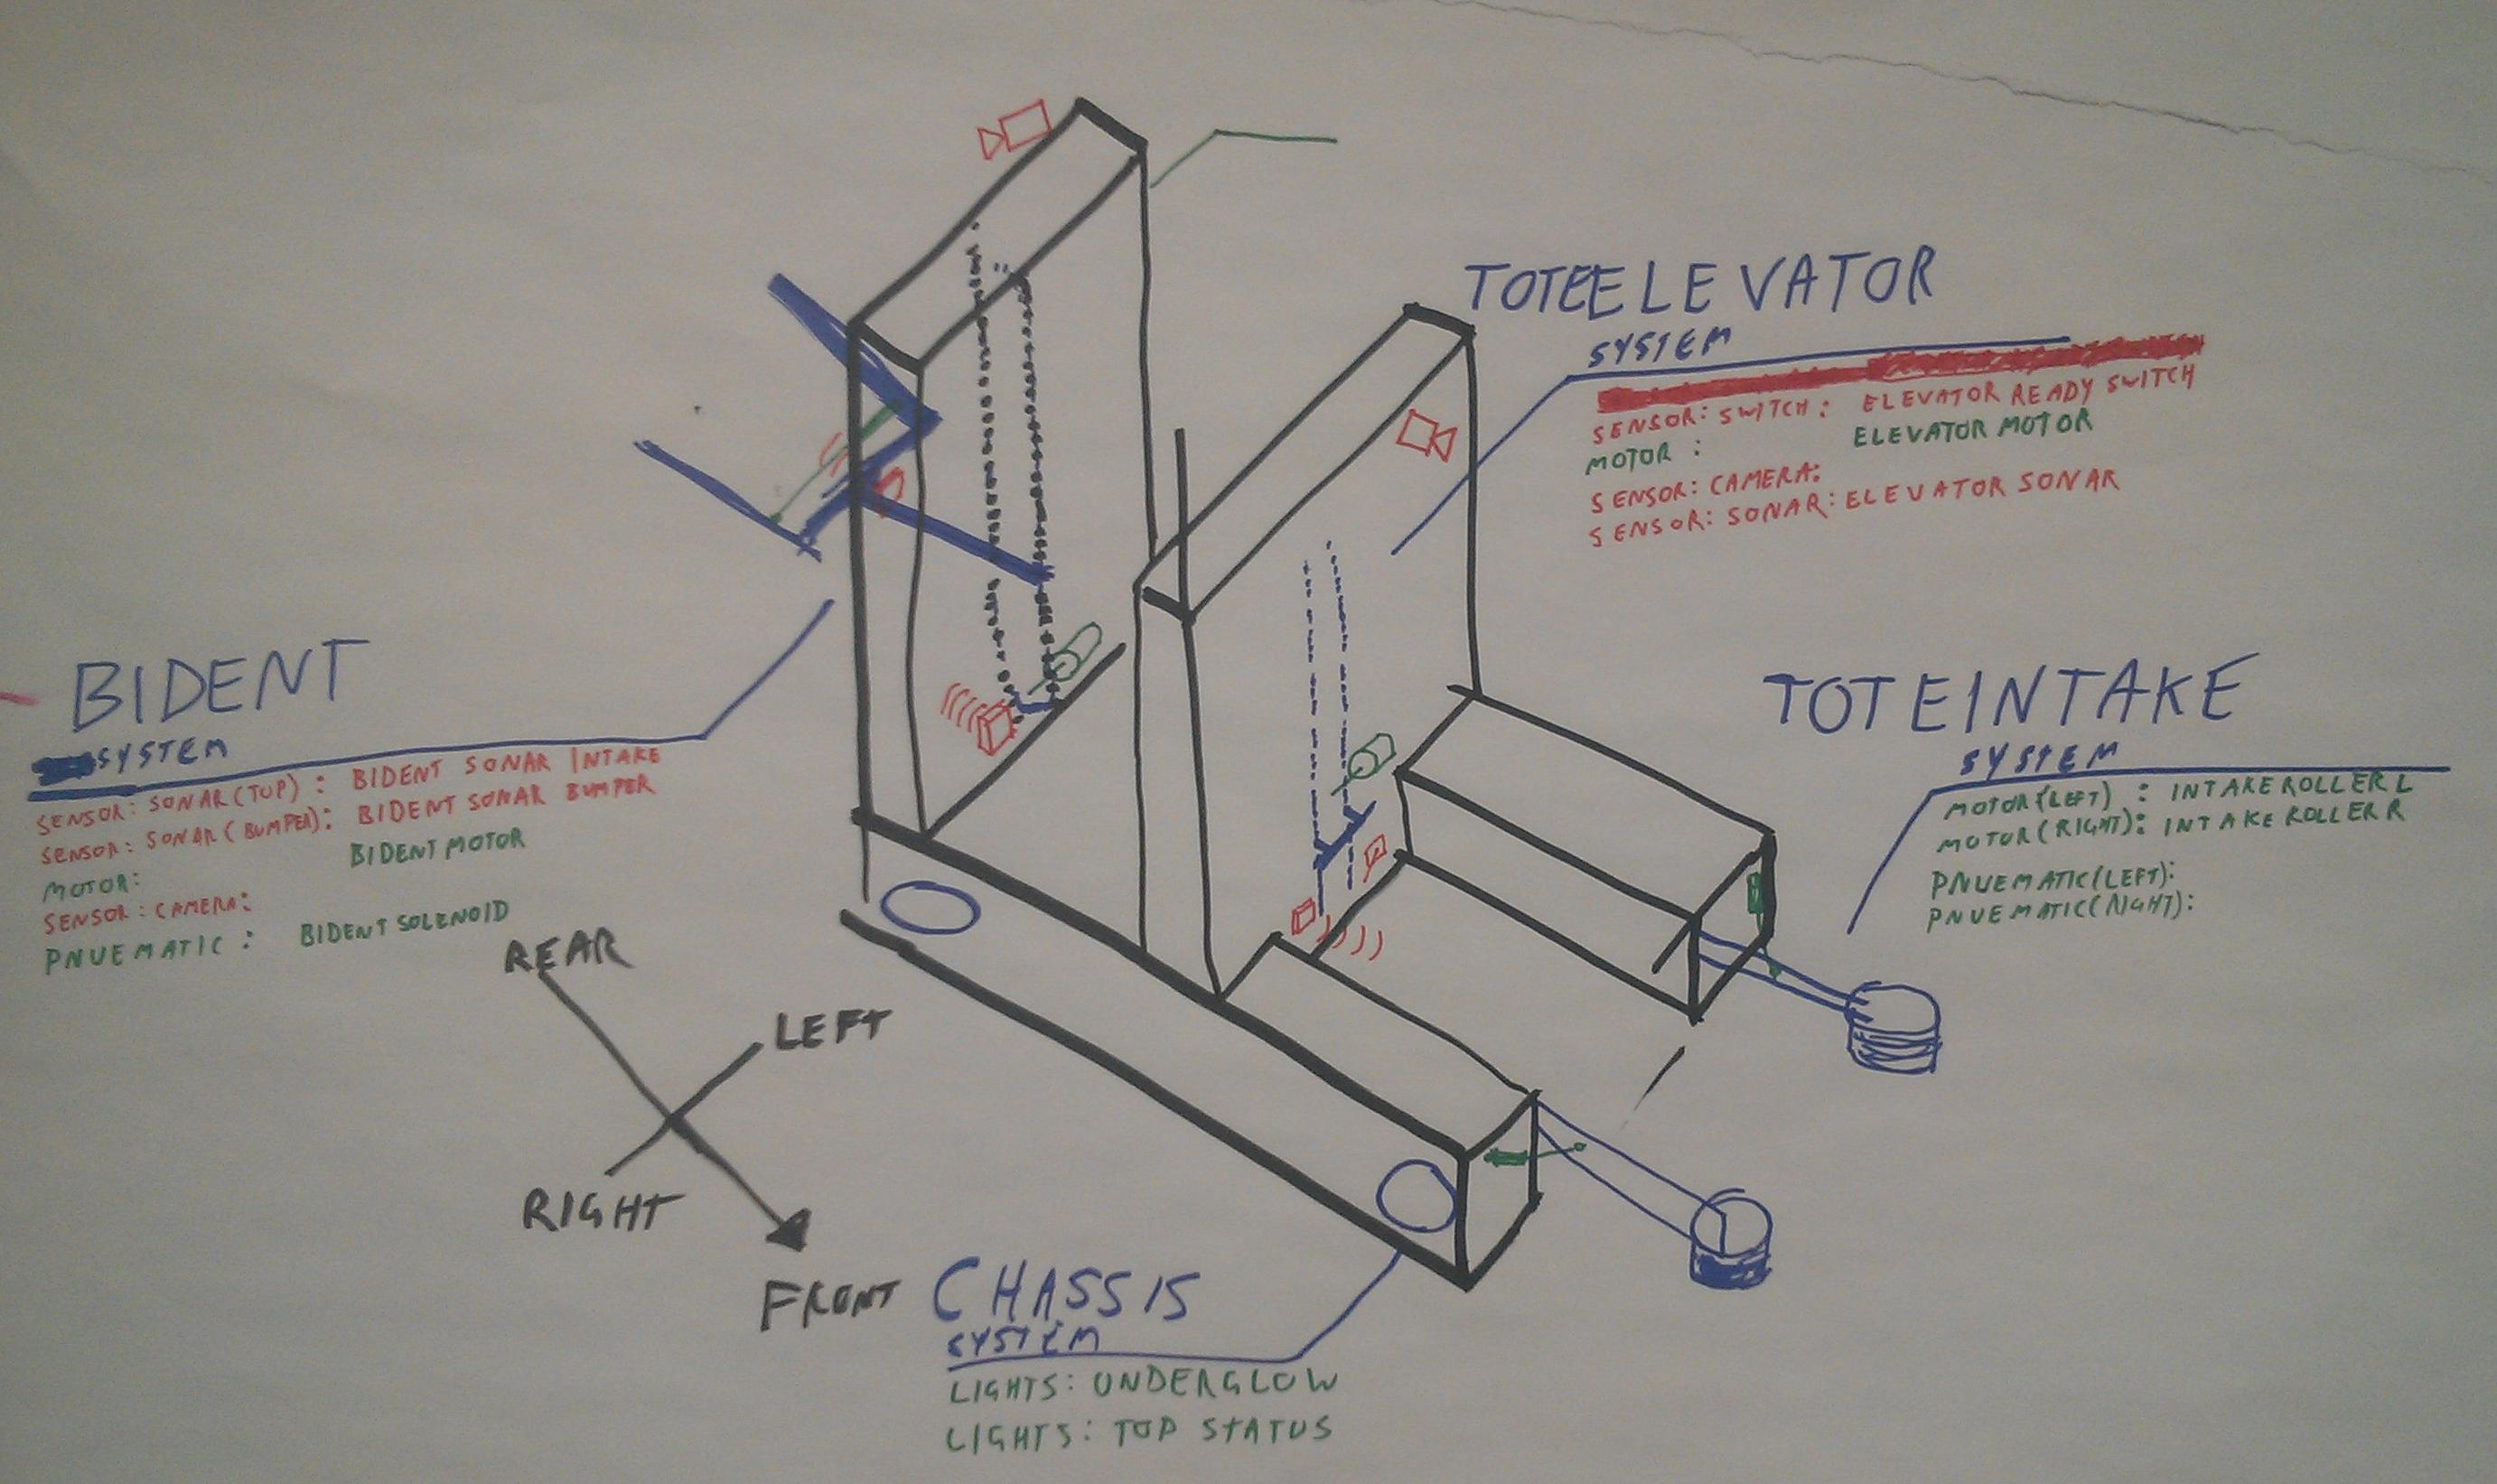 TOTEELEVATOR
SYSTEM
SENSOR: SWITCH: ELEVATOR READY SWITCH
MOTOR: ELEVATOR MOTOR
SENSOR: CAMERA:
SENSOR: SONAR: ELEVATOR SONAR
BIDENT
SYSTEM
SENSOR: SONAR (TOP): BIDENT SONAR INTAKE
SENSOR: SONAR (BUMPER): BIDENT SONAR BUMPER
MOTOR: BIDENT MOTOR
SENSOR: CAMERA:
PNUEMATIC: BIDENT SOLENOID
TOTEINTAKE
SYSTEM
MOTOR (LEFT): INTAKE ROLLER L
MOTOR (RIGHT): INTAKE ROLLER R
PNUEMATIC (LEFT):
PNUEMATIC (RIGHT):
REAR
LEFT
RIGHT
FRONT
CHASSIS
SYSTEM
LIGHTS: UNDERGLOW
LIGHTS: TOP STATUS